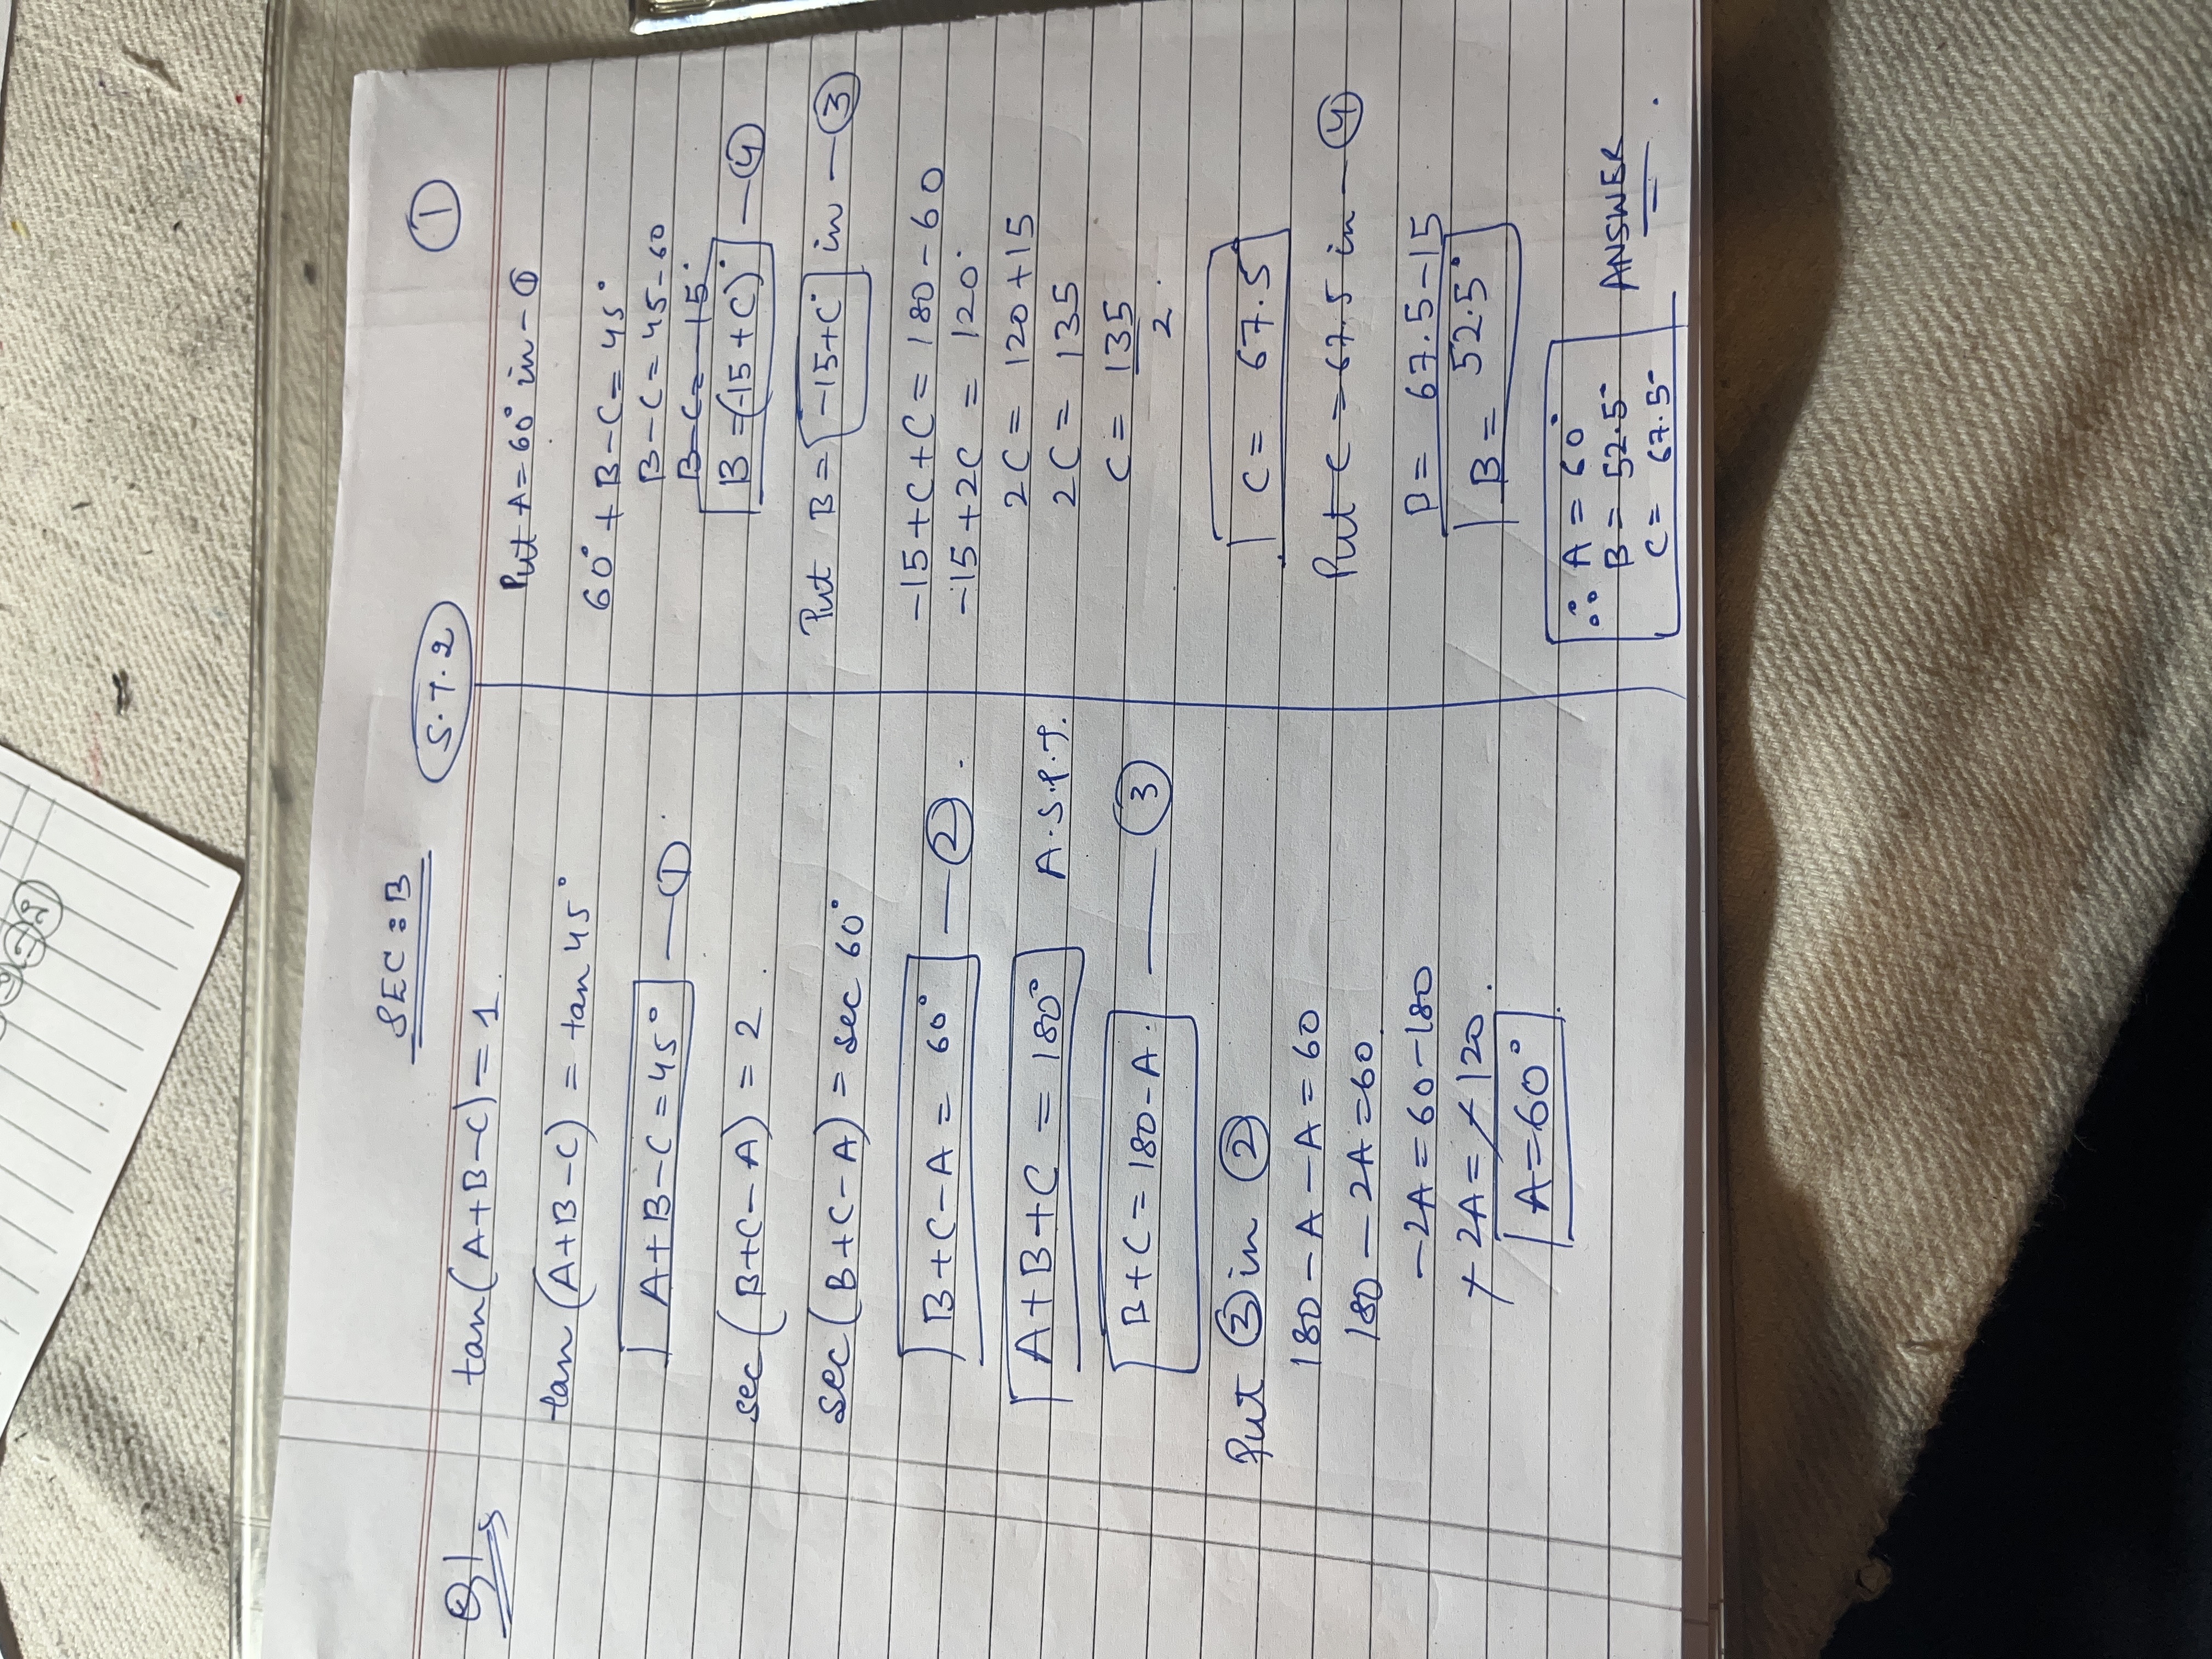 SEC:B
S.T.2
1
Q1
tan(A+B-C)=1
tan(A+B-C) = tan 45°
A+B-C=45° —①
sec(B+C-A) = 2
sec(B+C-A) = sec 60°
B+C-A = 60° —②.
A+B+C = 180° A.S.P.T.
B+C=180-A. —③
Put ③ in ②
180-A-A=60
180-2A=60
-2A=60-180
-2A=-120.
A=60°
Put A=60° in -①
60°+B-C=45°
B-C=45-60
B-C=-15°
B=(-15+C)° —④
Put B=-15+C° in —③
-15+C+C=180-60
-15+2C = 120°
2C = 120+15
2C = 135
C= 135
2.
C= 67.5
Put C=67.5 in —④
B= 67.5-15
B= 52.5°
∴ A=60°
B=52.5
C= 67.5
ANSWER.